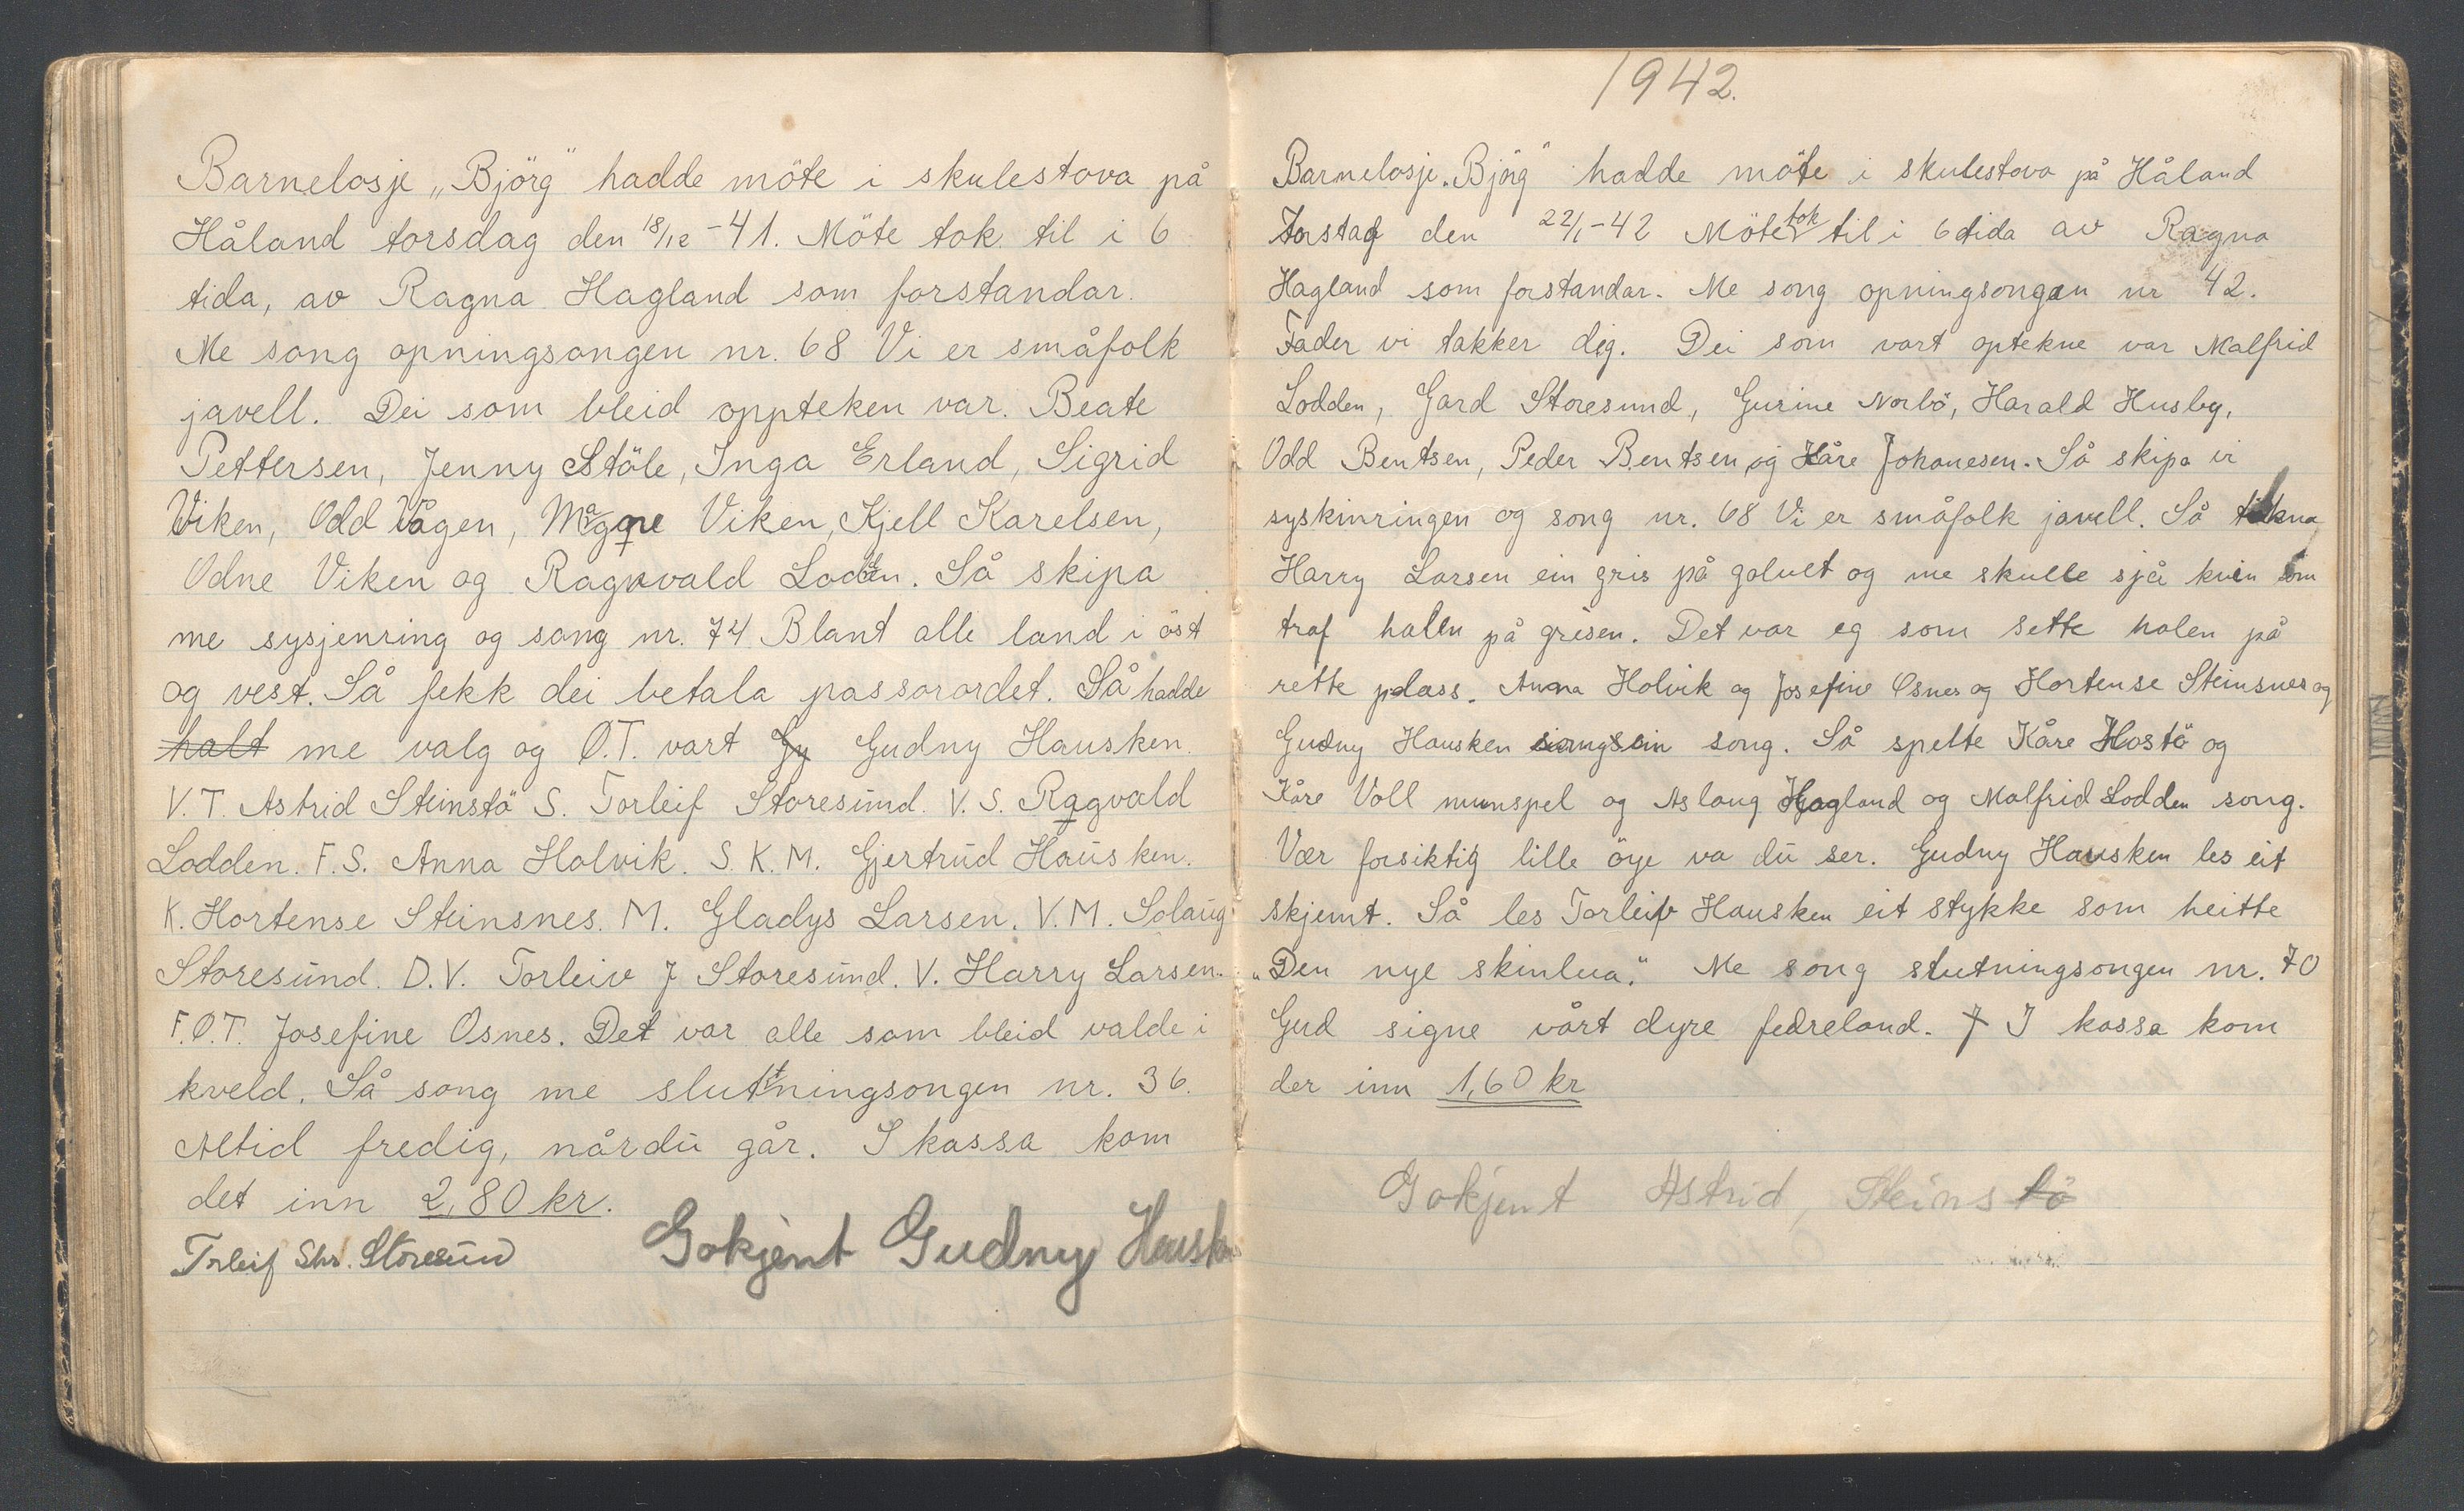 Barnelosje „Björg" hadde möte i skulestova på
Håland torsdag den 18/12 -41. Möte tok til i 6
tida, av Ragna Hagland som forstandar.
Me song opningsongen nr. 68 Vi er småfolk
javell. Dei som bleid oppteken var. Beate
Pettersen, Jenny Stöle, Inga Erland, Sigrid
Viken, Odd Vågen, Magne Viken, Kjell Karelsen,
Odne Viken og Ragnvald Lodden. Så skipa
me sysjenring og song nr. 74 Blant alle land i öst
og vest. Så fekk dei betala passorordet. Så hadde
halt me valg og Ø.T. vart Gy Gudny Hausken.
V.T. Astrid Steinstö S. Torleif Storesund. V.S. Ragvald
Lodden. F.S. Anna Holvik. S.K.M. Gjertrud Hausken.
K. Hortense Steinsnes. M. Gladys Larsen. V.M. Solaug
Storesund. D.V. Torleiv J Storesund. V. Harry Larsen.
F.Ø.T. Josefine Osnes. Det var alle som bleid valde i
kveld. Så song me slutningsongen nr. 36.
Altid fredig, når du går. I kassa kom
det inn 2,80 kr.
Torleif Storesund Gokjent Gudny Hausken
1942.
Barnelosje „Björg" hadde möte i skulestova på Håland
Torstag den 22/1-42 Möte tok til i 6 tida av Ragna
Hagland som forstandar. Me song opningsongen nr 42.
Fader vi takker dig. Dei som vart optekne var Malfrid
Lodden, Gard Storesund, Gurine Norbö, Harald Husby,
Odd Bentsen, Peder Bentsen og Kåre Johanesen. Så skipa vi
syskinringen og song nr. 68 Vi er småfolk javell. Så tekna
Harry Larsen ein gris på golvet og me skulle sjå kvin som
traf halen på grisen. Det var eg som sette halen på
rette plass. Anna Holvik og Josefine Osnes og Hortense Steinsnes og
Gudny Hausken song ein song. Så spelte Kåre Hostö og
Kåre Voll munspel og Aslaug Hagland og Malfrid Lodden song.
Vær forsiktig lille öye va du ser. Gudny Hausken les eit
skjemt. Så les Torleif Hausken eit stykke som heitte
„Den nye skinlua." Me song slutningsongen nr. 70
Gud signe vårt dyre fedreland. I kassa kom
der inn 1,60 kr
Gokjent Astrid, Steinstö